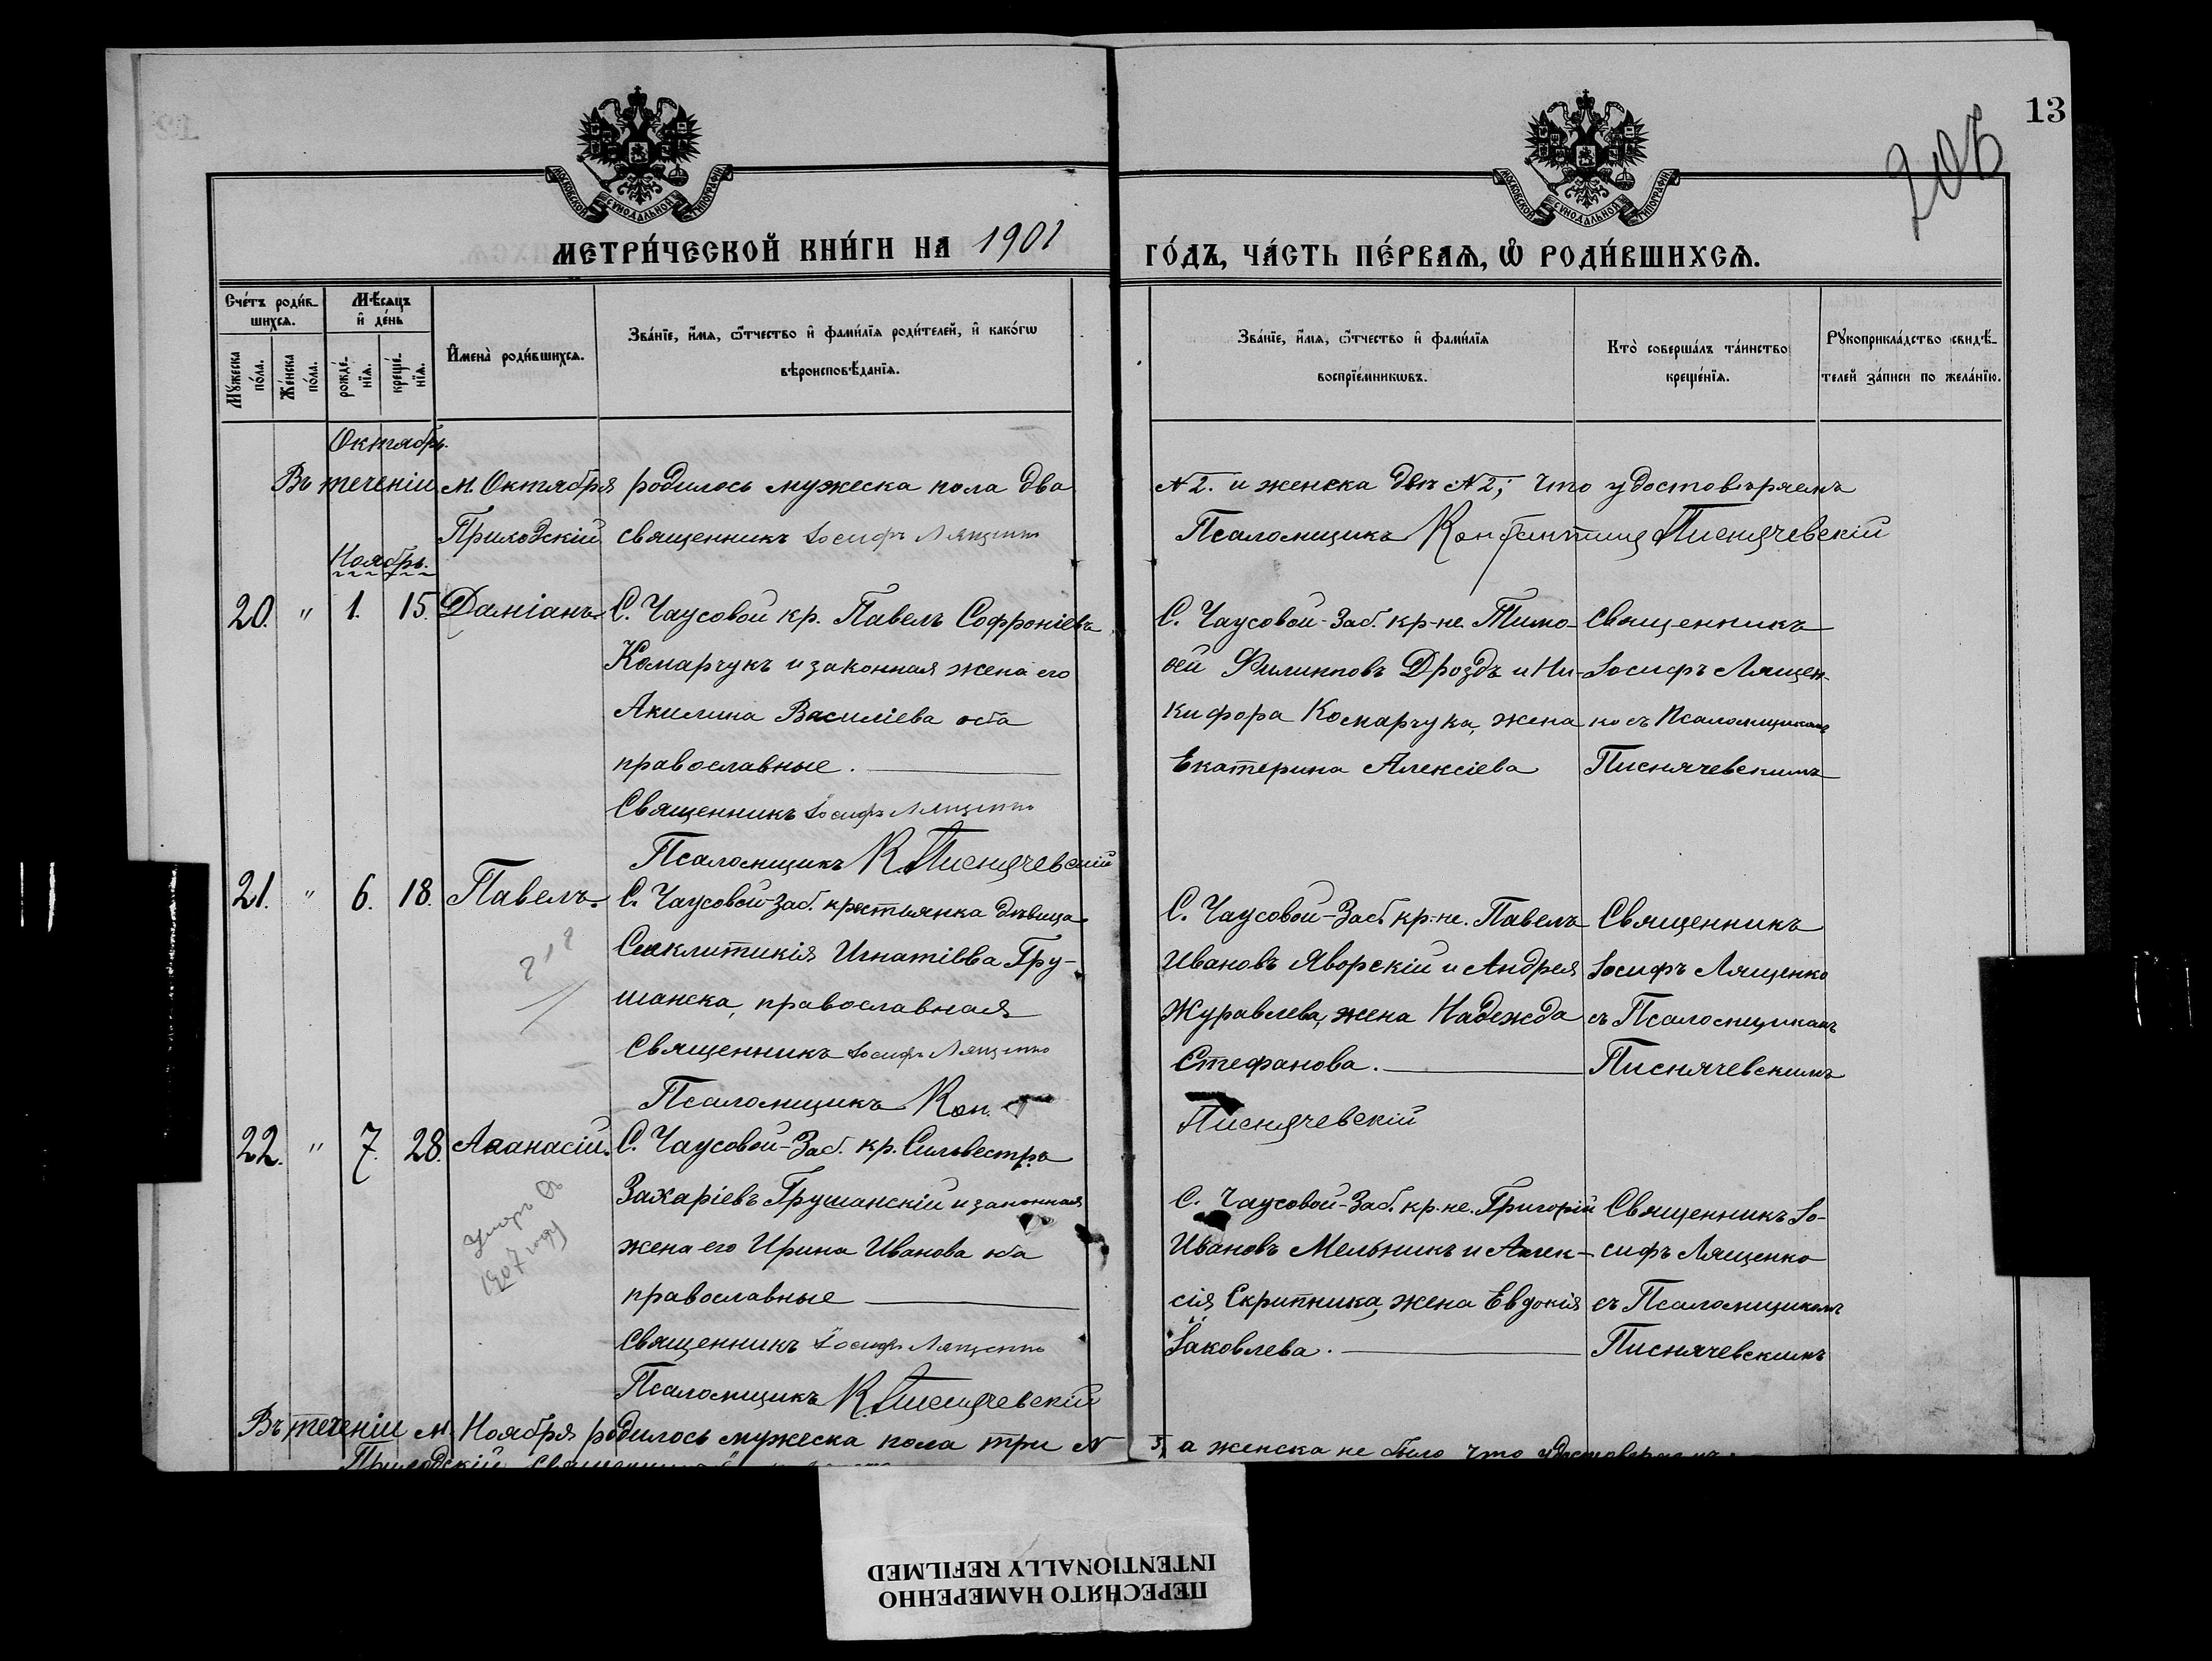 13
205
МЕТРИ́ЧЕСКОЙ КНИ́ГИ НА 1901
ГО́ДЪ, ЧА́СТЬ ПЕ́РВАѦ, Ѡ РОДИ́ВШИХСѦ.
МОСКОВСКОЙ СѴНОДАЛЬНОЙ ТИПОГРАФІИ
МОСКОВСКОЙ СѴНОДАЛЬНОЙ ТИПОГРАФІИ
Сче́тъ роди́в-
шихсѧ.
Мꙋ́жеска
по́ла.
Же́нска
по́ла.
Мѣ́сѧцъ
и҆ де́нь
рожде́-
нїѧ.
креще́-
нїѧ.
И҆мена̀ роди́вшихсѧ.
Зва́нїе, и҆́мѧ, ѻ҆́тчество и҆ фами́лїѧ роди́телей, и҆ како́гѡ
вѣроисповѣ́данїѧ.
Зва́нїе, и҆́мѧ, ѻ҆́тчество и҆ фами́лїѧ
воспрїе́мникѡвъ.
Кто̀ соверша́лъ та́инство
креще́нїѧ.
Рꙋкоприкла́дство свидѣ́-
телей за́писи по жела́нїю.
Октябрь.
Въ теченіи м. Октября родилось мужеска пола два
№ 2. и женска двѣ № 2; что удостовѣряемъ
Приходскій священникъ Іосифъ Лященко
Псаломщикъ Константинъ Писнячевскій
Ноябрь.
20. " 1. 15. Даміанъ.
С. Чаусовой кр. Павелъ Софроніевъ
Комарчукъ и законная жена его
Акилина Василіева оба
православные.
Священникъ Іосифъ Лященко
Псаломщикъ К. Писнячевскій
С. Чаусовой-Заб. кр-не. Тимо-
ѳей Филипповъ Дроздъ и Ни-
кифора Комарчука, жена
Екатерина Алексіева
Священникъ
Іосифъ Лящен-
ко съ Псаломщикомъ
Писнячевскимъ
21. " 6. 18. Павелъ.
С. Чаусовой-Заб. крестьянка дѣвица
Синклитикія Игнатіева Гру-
шанска, православная
Священникъ Іосифъ Лященко
Псаломщикъ Кон.
Писнячевскій
С. Чаусовой-Заб кр-не. Павелъ
Ивановъ Яворскій и Андрея
Журавлева, жена Надежда
Стефанова.
Священникъ
Іосифъ Лященко
съ Псаломщикомъ
Писнячевскимъ
22. " 7. 28. Аѳанасій.
Умеръ
1907 году
С. Чаусовой-Заб. кр. Сильвестръ
Захаріевъ Грушанскій и законная
жена его Ирина Иванова оба
православные
Священникъ Іосифъ Лященко
Псаломщикъ К. Писнячевскій
С. Чаусовой-Заб. кр-не. Григорій
Ивановъ Мельникъ и Алек-
сія Скрипника, жена Евдокія
Іаковлева.
Священникъ Іо-
сифъ Лященко
съ Псаломщикомъ
Писнячевскимъ
Въ теченіи м. Ноября родилось мужеска пола три №
3, а женска не было что удостовѣряемъ.
Приходскій Священникъ
ПЕРЕСНЯТО НАМЕРЕННО
INTENTIONALLY REFILMED